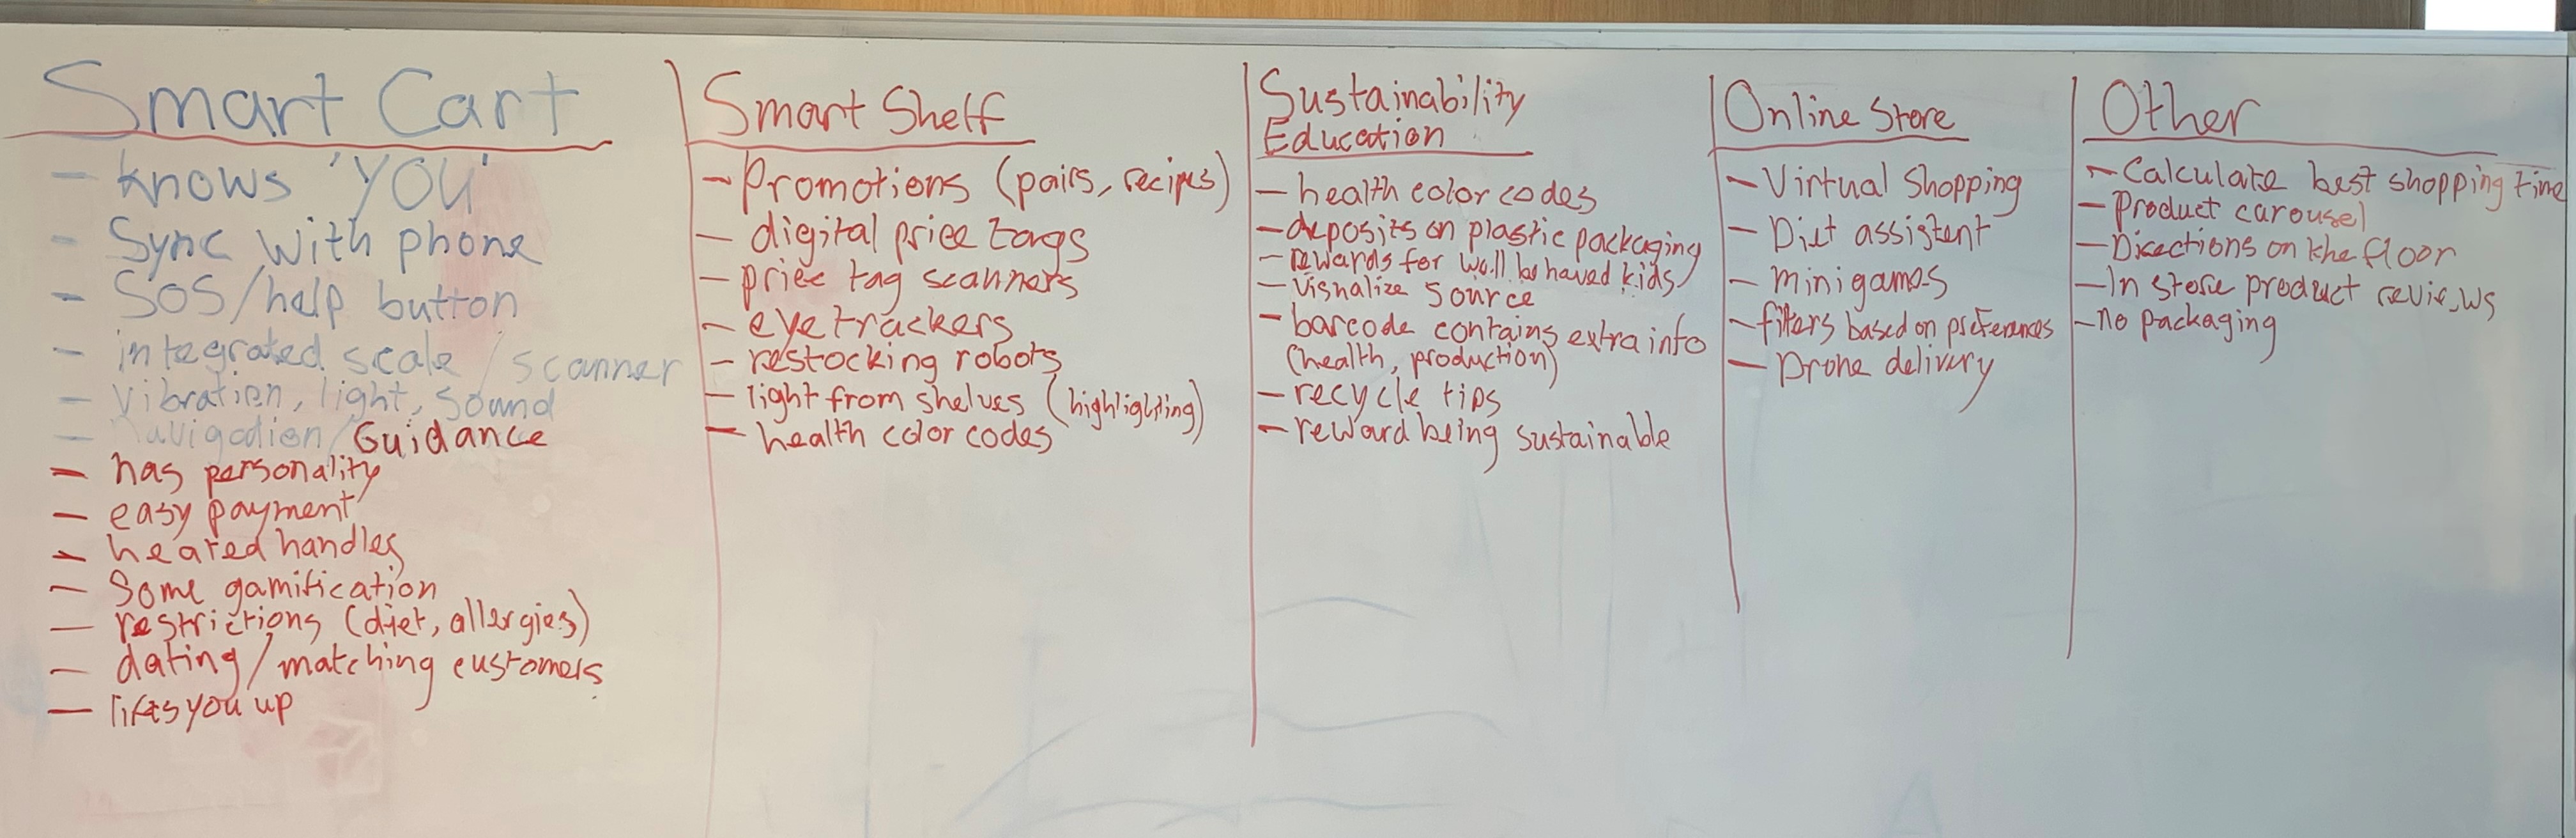 Smart Cart
- knows 'YOU'
- Sync with phone
- SOS/help button
- integrated scale / scanner
- Vibration, light, sound
- navigation/Guidance
- has personality
- easy payment
- heated handles
- Some gamification
- restrictions (diet, allergies)
- dating/matching customers
- lifts you up
Smart Shelf
- Promotions (pairs, recipes)
- digital price tags
- price tag scanners
- eye trackers
- restocking robots
- light from shelves (highlighting)
- health color codes
Sustainability
Education
- health color codes
- deposits on plastic packaging
- rewards for well behaved kids
- Visualize source
- barcode contains extra info
(health, production)
- recycle tips
- reward being sustainable
Online Store
- Virtual Shopping
- Diet assistent
- minigames
- filters based on preferences
- Drone delivery
Other
- Calculate best shopping time
- Product carousel
- Directions on the floor
- In store product reviews
- no packaging